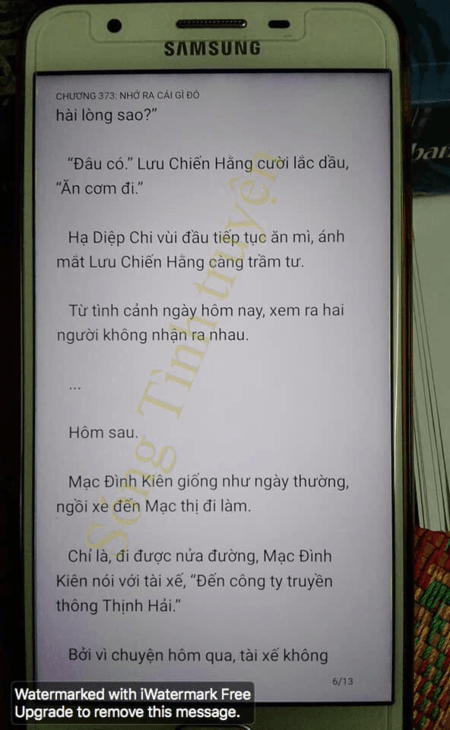 SAMSUNG
CHƯƠNG 373: NHỚ RA CÁI GÌ ĐÓ
hài lòng sao?”
“Đâu có.” Lưu Chiến Hằng cười lắc dầu,
“Ăn cơm đi.”
Hạ Diệp Chi vùi đầu tiếp tục ăn mì, ánh
mắt Lưu Chiến Hằng càng trầm tư.
Từ tình cảnh ngày hôm nay, xem ra hai
người không nhận ra nhau.
...
Hôm sau.
Mạc Đình Kiên giống như ngày thường,
ngồi xe đến Mạc thị đi làm.
Chỉ là, đi được nửa đường, Mạc Đình
Kiên nói với tài xế, “Đến công ty truyền
thông Thịnh Hải.”
Bởi vì chuyện hôm qua, tài xế không
6/13
Sống Tình truyện
Watermarked with iWatermark Free
Upgrade to remove this message.